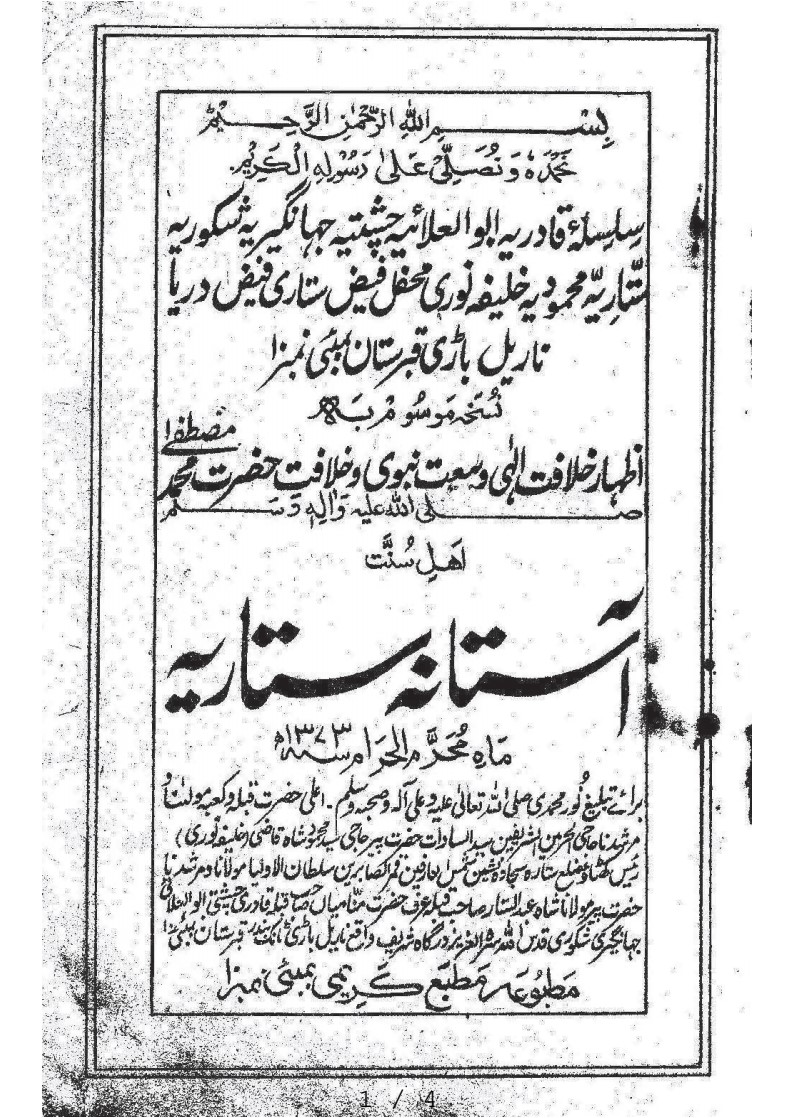 بِسْمِ اللهِ الرَّحْمٰنِ الرَّحِيْمِ
نَحْمَدُهٗ وَنُصَلِّیْ عَلٰی رَسُوْلِهِ الْکَرِیْمِ.
سِلسِلۂ قادریہ ابوالعلائیہ چشتیہ جہانگیریہ شکوریہ
ستّاریہ محمودیہ خلیفہ نوری محفل فیض ستاری فیض دریا
ناریل باڑی قبرستان بمبئی نمبر۱
نُسخہ مَوسُوم بَہ
اظہار خلافت الٰہی وسعت نبوی و خلافتِ حضرت محمد مصطفیٰ
صلی اللہ علیہ وَاٰلِہٖ وَسَلَّم
اَھلِ سُنَّت
آستانہ ستاریہ
مَاہِ مُحَرَّم الحَرَام سنہ ۱۳۷۳ھ
برائے تبلیغ نُور محمدی صلی اللہ تعالیٰ علیہ وعلیٰ آلہ وصحبہ وسلم۔ اعلیٰ حضرت قبلہ و کعبہ مولٰنا
مرشدنا حاجی الحرمین الشریفین سید السادات حضرت پیر حاجی سید محمود شاہ قاضی (خلیفہ نوری)
رئیس ضلع ستارہ سجادہ نشین شمس العارفین قمر الصابرین سلطان الاولیا مولانا و مرشدنا
حضرت پیر مولانا شاہ عبد الستار صاحب قبلہ عرف حضرت منّا میاں صاحب قبلہ قادری چشتی ابوالعلائی
جہانگیری شکوری قدس اللہ سرہ العزیز درگاہ شریف واقع ناریل باڑی بندر قبرستان بمبئی۱
مَطبُوعہ مَطبَع کَرِیمی بمبئی نمبر۱
1 / 4